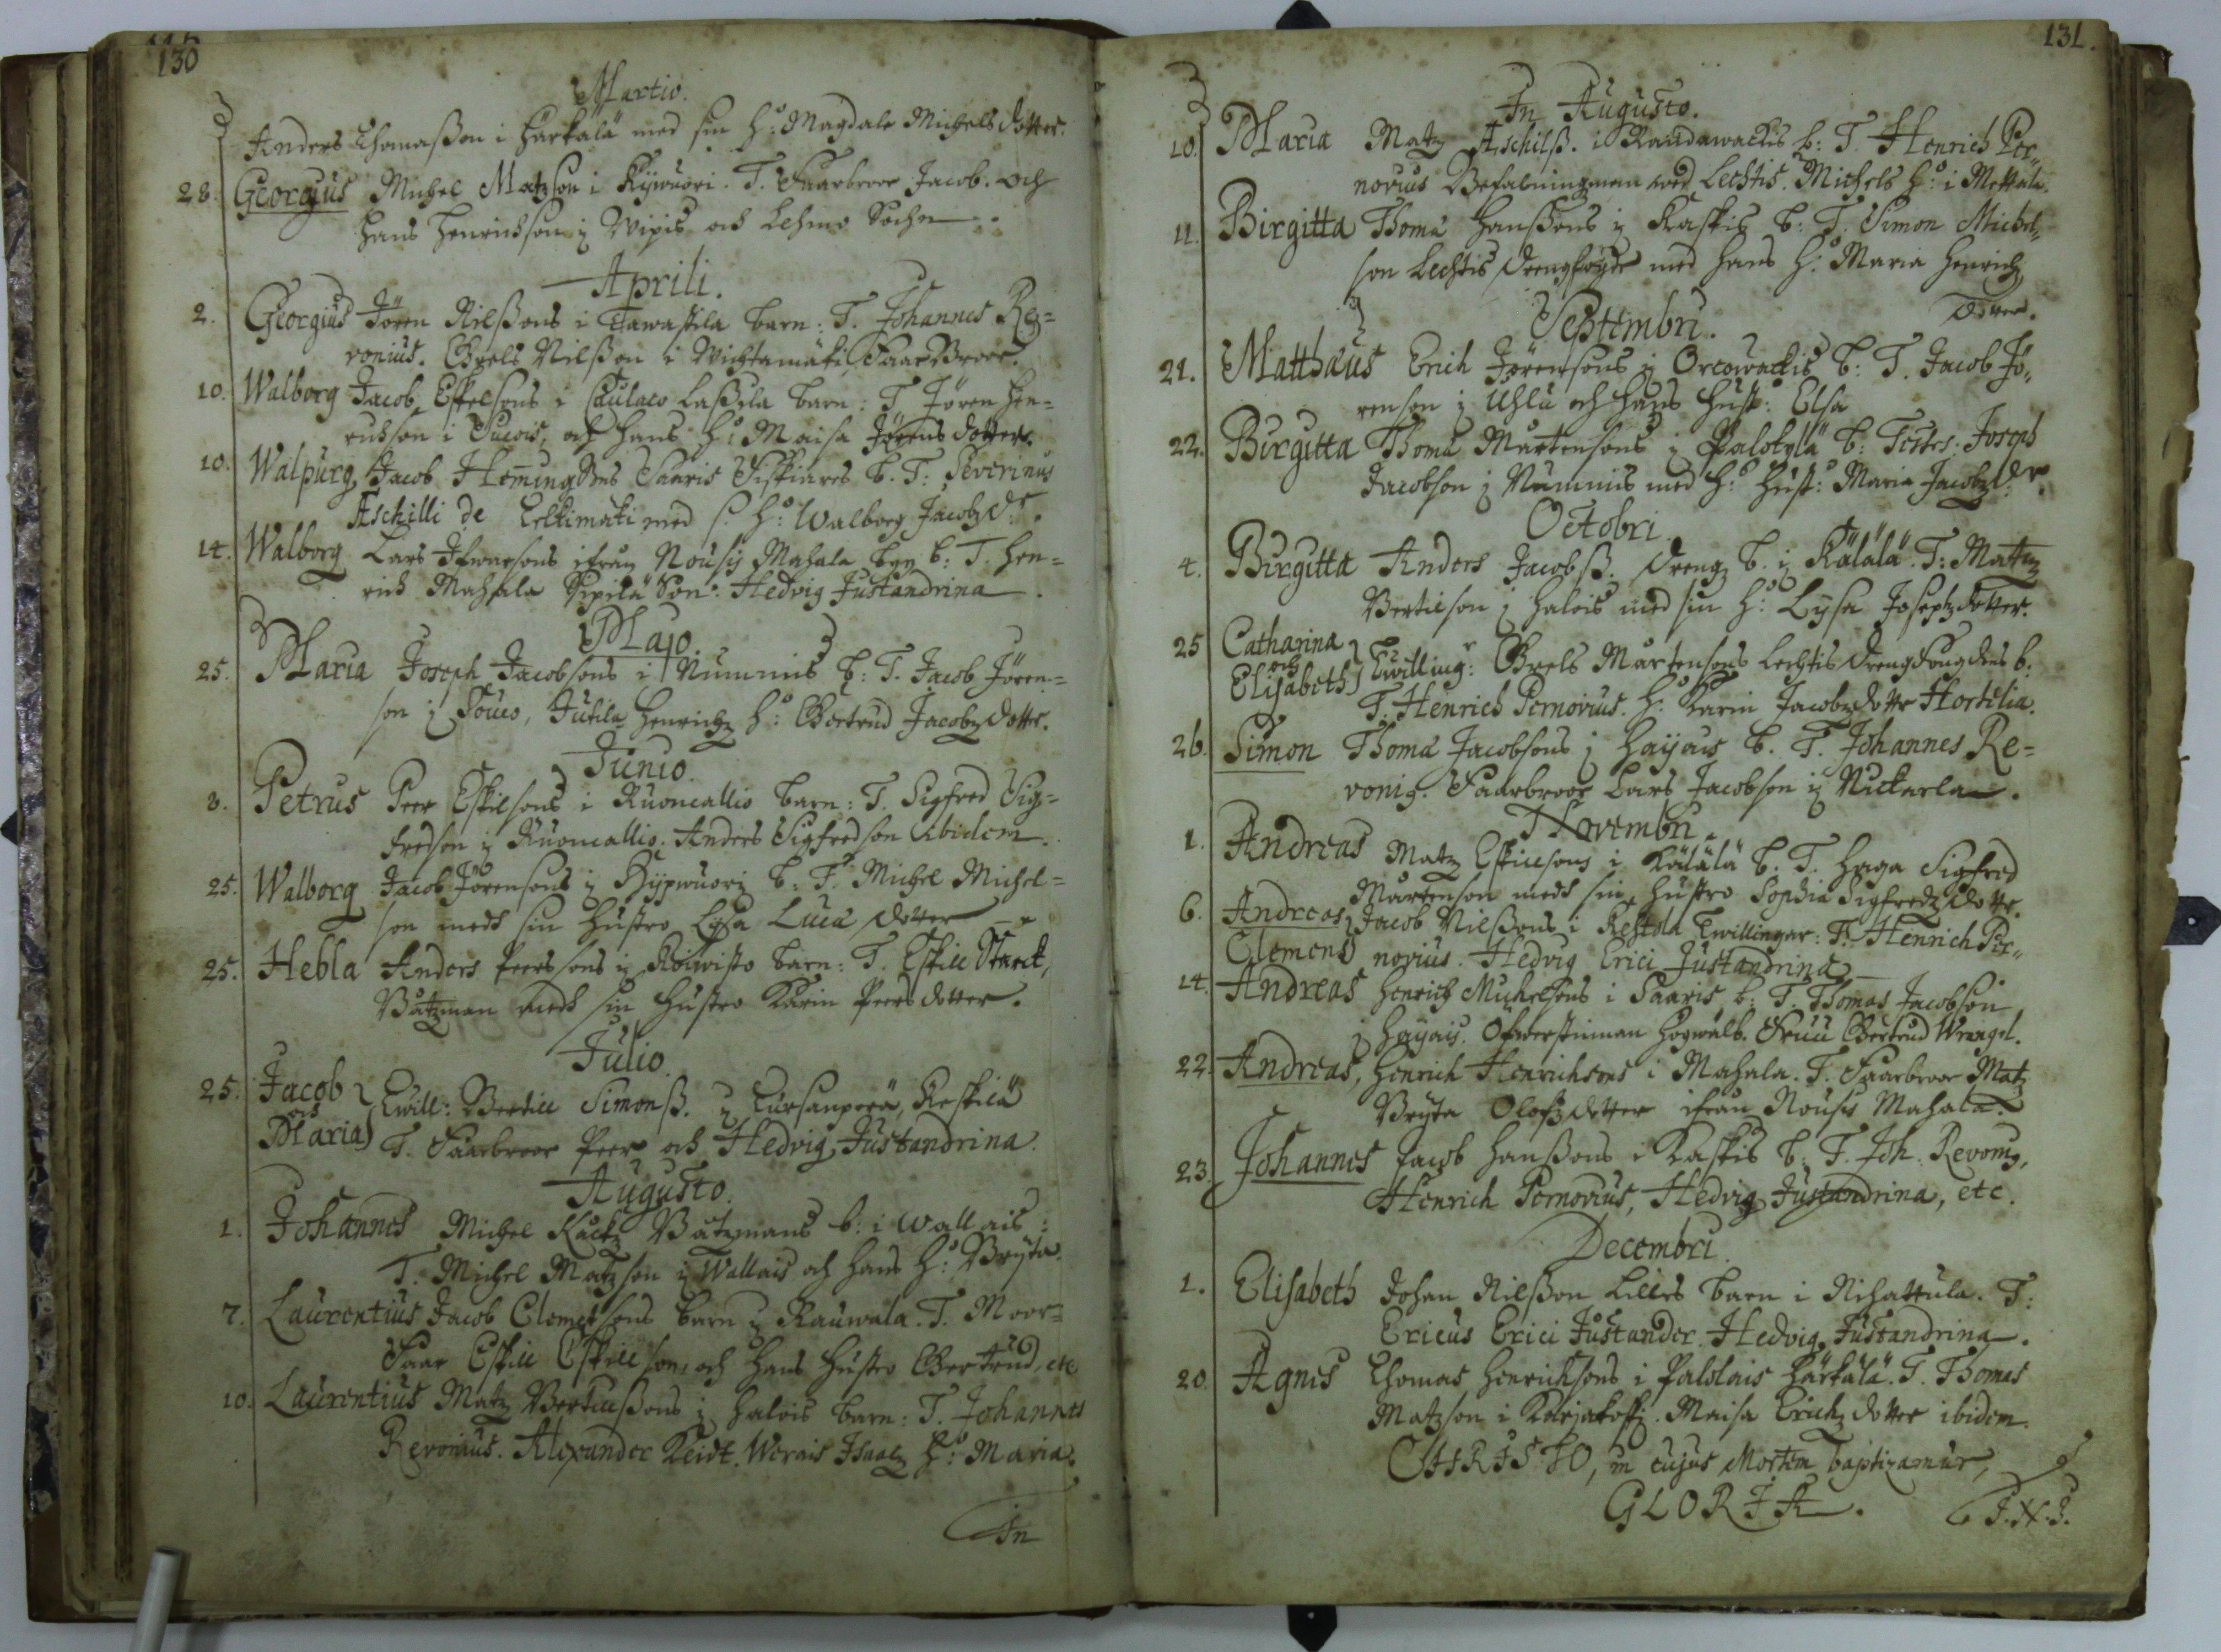 130
Martio.
Anders Thomaßon i Härkälä med sin h:o Magdale Michelsdotter.
28. Georgius Michel Matzson i Kÿwuori. T. Saarbroor Jacob. och
Hans Henrichson i Wipis och Lehmo Sochn
Aprili.
2. Georgius Jören Nilßons i Tawastila barn: T. Johannes Re-
vonius. Grels Nilßon i Wichtamäki, Saar Broor.
10. Walborg Jacob Eskelsons i Caulaco Laßila barn: T Jören Hen-
richson i Sucois, och hans h:o Maisa Jörens dotter.
10. Walpurg Jacob Hemingßons Saaris Fiskiares b. T: Severinus
Æschilli de Lelkimäki med s. h:o Walborg Jacobz d:r.
14. Walborg Lars Ifwarsons ifrån Nousis Mahala byy b: T. Hen-
rich Mahala Sipilä Son: Hedvig Justandrina
Majo.
25. Maria Joseph Jacobsons i Nummis b: T. Jacob Jören-
son i Souco, Jutila Henrichz h:o Gertrud Jacobz dotter.
Junio.
3. Petrus Peer Eskilsons i Ruoncallio barn: T. Sigfred Sig-
fredson i Ruoncallio. Anders Sigfredson ibidem.
25. Walborg Jacob Jörensons i Kÿpwuori b: T. Michel Michel-
son medh sin hustro Lÿsa Lucæ dotter
25. Hebla Anders Peersons i Koiwisto barn: T. Eskill Starck,
Båtzman medh sin hustro Karin Peersdotter.
Julio.
25. Jacob och Maria Twill: Bertill Simonß. i Tursanperä, Keskilä
T. Saarbroor Peer och Hedvig Justandrina.
Augusto.
1. Johannes Michel Kackz Båtzmans b: i Wallais:
T. Michel Matzson i Wallais och hans h:o Brÿta.
7. Laurentius Jacob Clemetsons barn i Rauwala. T. Moor-
Faar Eskill Eskillson, och hans hustro Gertrud, etc
10. Laurentius Matz Bertillßons i Halois barn: T. Johannes
Revonius. Alexander Keidt. Werais Isaacz h:o Maria.
In
131.
In Augusto.
10. Maria Matz Æschilß. i Randawackis b: T. Henrich Per-
novius Befalningzman wed Lechtis. Michels h:o i Mettälä.
11. Birgitta Thomæ Hanßons i Kaskis b: T. Simon Michel-
son Lechtis drengfogde med hans h:o Maria Henrichz
dotter.
Septembri.
21. Matthæus Erich Jörensons i Orcowackis b: T. Jacob Jö-
renson i Uhlu och hans hust: Elsa
22. Birgitta Thomæ Mårtensons i Palokylä b: Testes: Joseph
Jacobson i Nummis med h:s hust: Maria Jacobz d:r.
Octobri
4. Birgitta Anders Jacobß. drengz b. i Kälälä. T: Matz
Bertilson i Halois med sin h:o Lÿsa Josephzdotter.
25 Catharina och Elisabeth Twilling:r Grels Mårtensons Lechtis drengfougdens b.
T. Henrich Pernovius. h:o Karin Jacobzdotter Hortelia.
26. Simon Thomæ Jacobsons i Haÿais b. T. Johannes Re-
voni9. Saarbroor Lars Jacobson i Nuckarla.
Novembri.
1. Andreas Matz Eskillsons i Kälälä b. T. Haga Sigfred
Mårtenson medh sin hustro Sophia Sigfredz dotter.
6. Andreas, Jacob Nilßons i Kestola Twillingar: T. Henrich Per-
Clemens novius. Hedvig Erici Justandrina
14. Andreas Henrich Michelsons i Saaris b: T. Thomas Jacobson
i Haÿais. Öfwerstinnan Högwälb. Fruu Gertrud Wrangel.
22. Andreas, Henrich Henrichsons i Mahala. T. Saarbroor Matz
Brÿta Olofzdotter ifrån Nousis Mahala.
23. Johannes Jacob Hanßons i Kaskis b. T. Joh. Revoni9,
Henrich Pernovius, Hedvig Justandrina, etc.
Decembri
1. Elisabeth Johan Nilßon Lilles barn i Nihattula. T:
Ericus Erici Justander. Hedvig Justandrina.
20. Agnes Thomas Henrichsons i Palolais Härkälä. T. Thomas
Matzson i Karjakoski. Maisa Erichz dotter ibidem.
CHRISTO, in cujus Mortem baptizamur,
GLORIA. I.N.I.